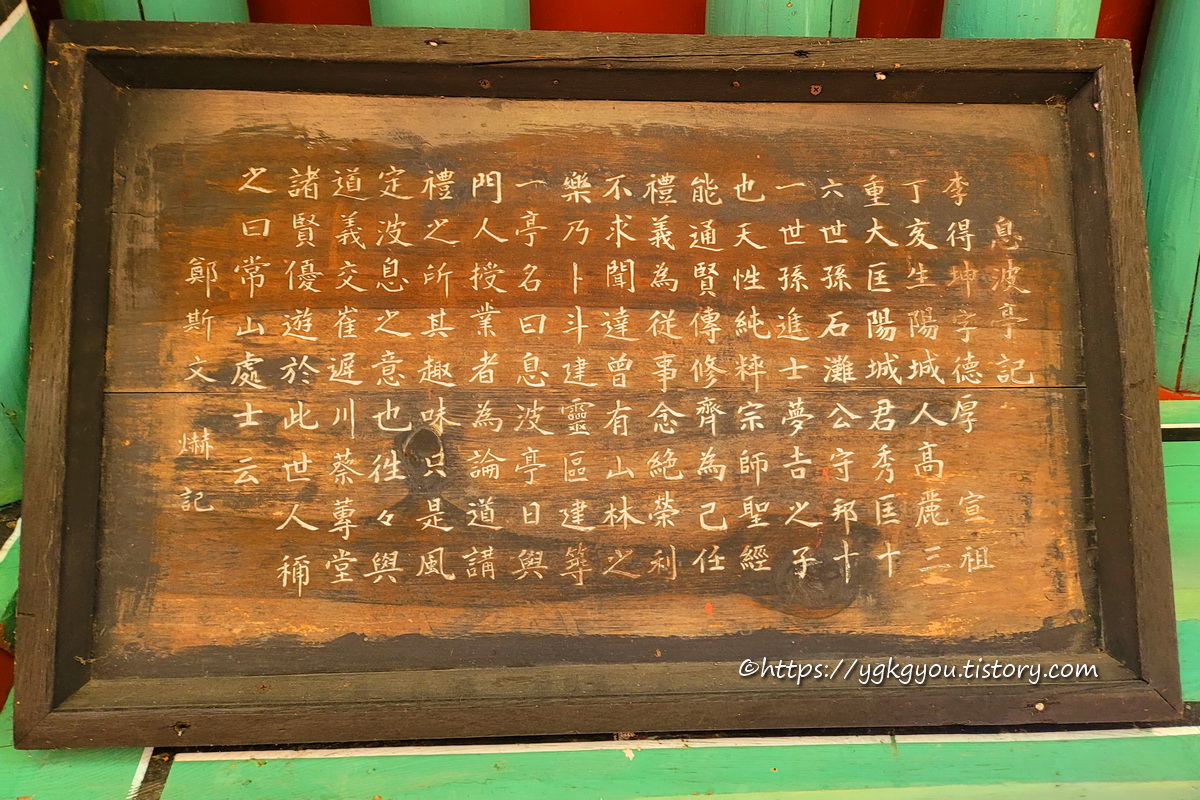 息波亭記
李得坤字德厚 宣祖
丁亥生陽城人高麗三
重大匡陽城君秀匡十
六世孫石灘公守邦十
一世孫進士夢吉之子
也天性純粹宗師聖經
能通賢傳修齊為己任
禮義為從事念絶榮利
不求聞達曾有山林之
樂乃卜斗建靈區建築
一亭名曰息波亭日與
門人授業者為論道講
禮之所其趣味只是風
定波息之意也徃々與
道義交崔遲川蔡蓴堂
諸賢優遊於此世人稱
之曰常山處士云
鄭斯文 爀記
©https://ygkgyou.tistory.com